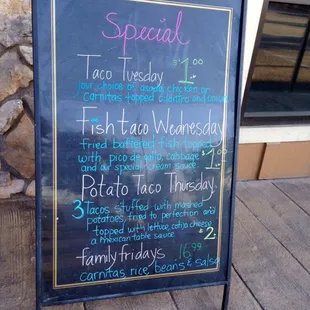 Special
Taco Tuesday $1.00
your choice of asada chicken or
carnitas topped cilantro and onions
Fish taco Wednesday
fried battered fish topped
with pico de gallo, cabbage
and our special cream sauce. $1.00
Potato Taco Thursday
3 Tacos stuffed with mashed
potatoes, fried to perfection and
topped with lettuce, cotija cheese,
a mexican table sauce. $2
family fridays 16.99
carnitas rice, beans & salsa